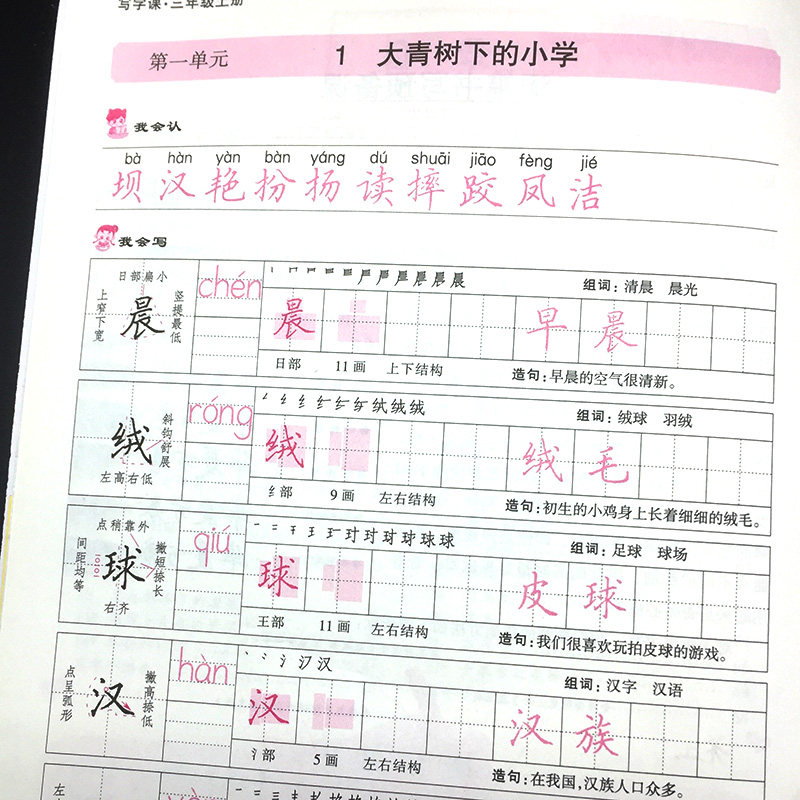 写字课·三年级上册
第一单元 1 大青树下的小学
我会认
bà hàn yàn bàn yáng dú shuāi jiāo fèng jié
坝 汉 艳 扮 扬 读 摔 跤 凤 洁
我会写
日部扁小
上窄下宽
晨
竖提最低
chén
组词：清晨 晨光
晨 早 晨
日部 11画 上下结构 造句：早晨的空气很清新。
绒
斜钩舒展
左高右低
róng
组词：绒球 羽绒
绒 绒 毛
纟部 9画 左右结构 造句：初生的小鸡身上长着细细的绒毛。
点稍靠外
间距均等
球
撇短捺长
右齐
qiú
组词：足球 球场
球 皮 球
王部 11画 左右结构 造句：我们很喜欢玩拍皮球的游戏。
点呈弧形
汉
撇高捺低
hàn
组词：汉字 汉语
汉 汉 族
氵部 5画 左右结构 造句：在我国，汉族人口众多。